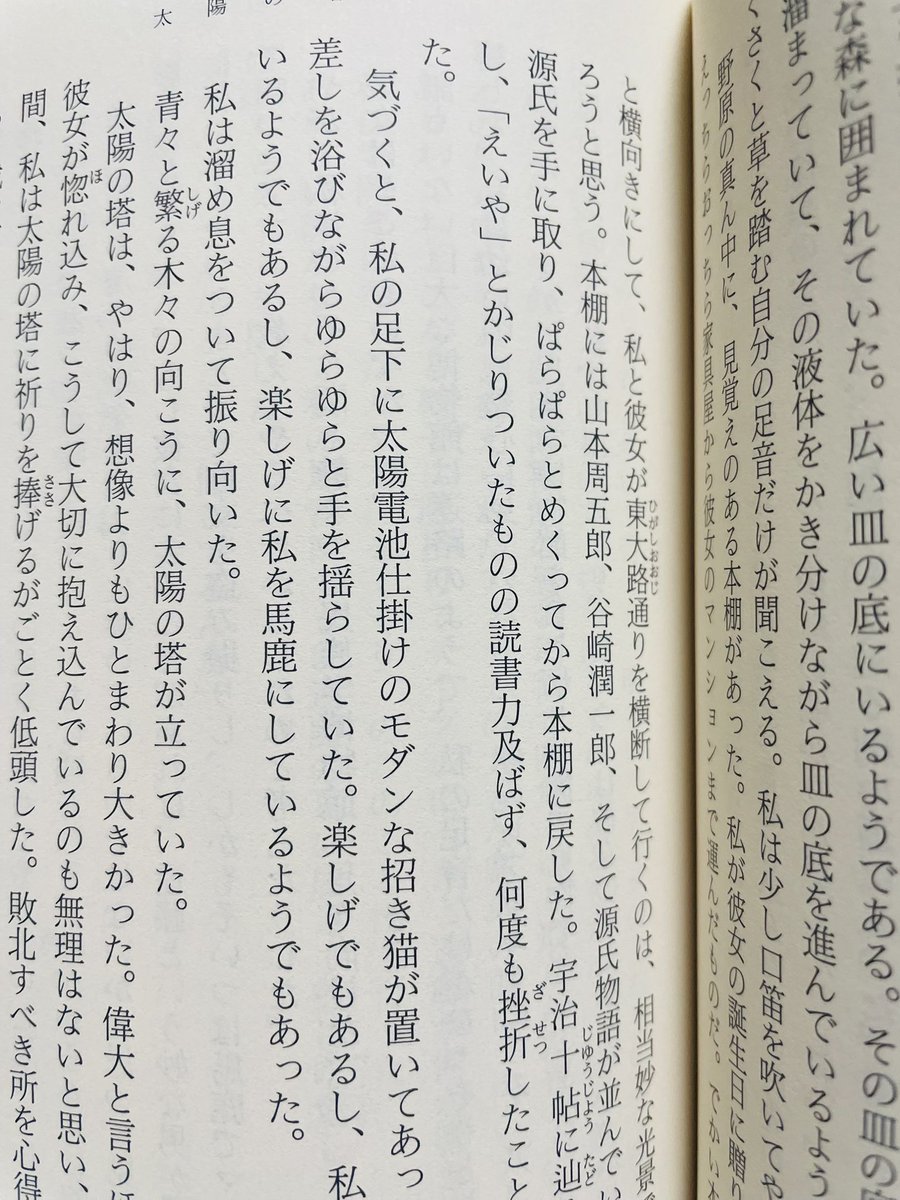 な森に囲まれていた。広い皿の底にいるようである。その皿の
溜まっていて、その液体をかき分けながら皿の底を進んでいるよう
くさくと草を踏む自分の足音だけが聞こえる。私は少し口笛を吹いてや
野原の真ん中に、見覚えのある本棚があった。私が彼女の誕生日に贈り
えっちらおっちら家具屋から彼女のマンションまで運んだものだ。でかい本
と横向きにして、私と彼女が東大路通りを横断して行くのは、相当妙な光景で
ろうと思う。本棚には山本周五郎、谷崎潤一郎、そして源氏物語が並んでい
源氏を手に取り、ぱらぱらとめくってから本棚に戻した。宇治十帖に辿
し、「えいや」とかじりついたものの読書力及ばず、何度も挫折したこと
た。
気づくと、私の足下に太陽電池仕掛けのモダンな招き猫が置いてあっ
差しを浴びながらゆらゆらと手を揺らしていた。楽しげでもあるし、私
いるようでもあるし、楽しげに私を馬鹿にしているようでもあった。
私は溜め息をついて振り向いた。
青々と繁る木々の向こうに、太陽の塔が立っていた。
太陽の塔は、やはり、想像よりもひとまわり大きかった。偉大と言うほ
彼女が惚れ込み、こうして大切に抱え込んでいるのも無理はないと思い、
間、私は太陽の塔に祈りを捧げるがごとく低頭した。敗北すべき所を心得
陽
太